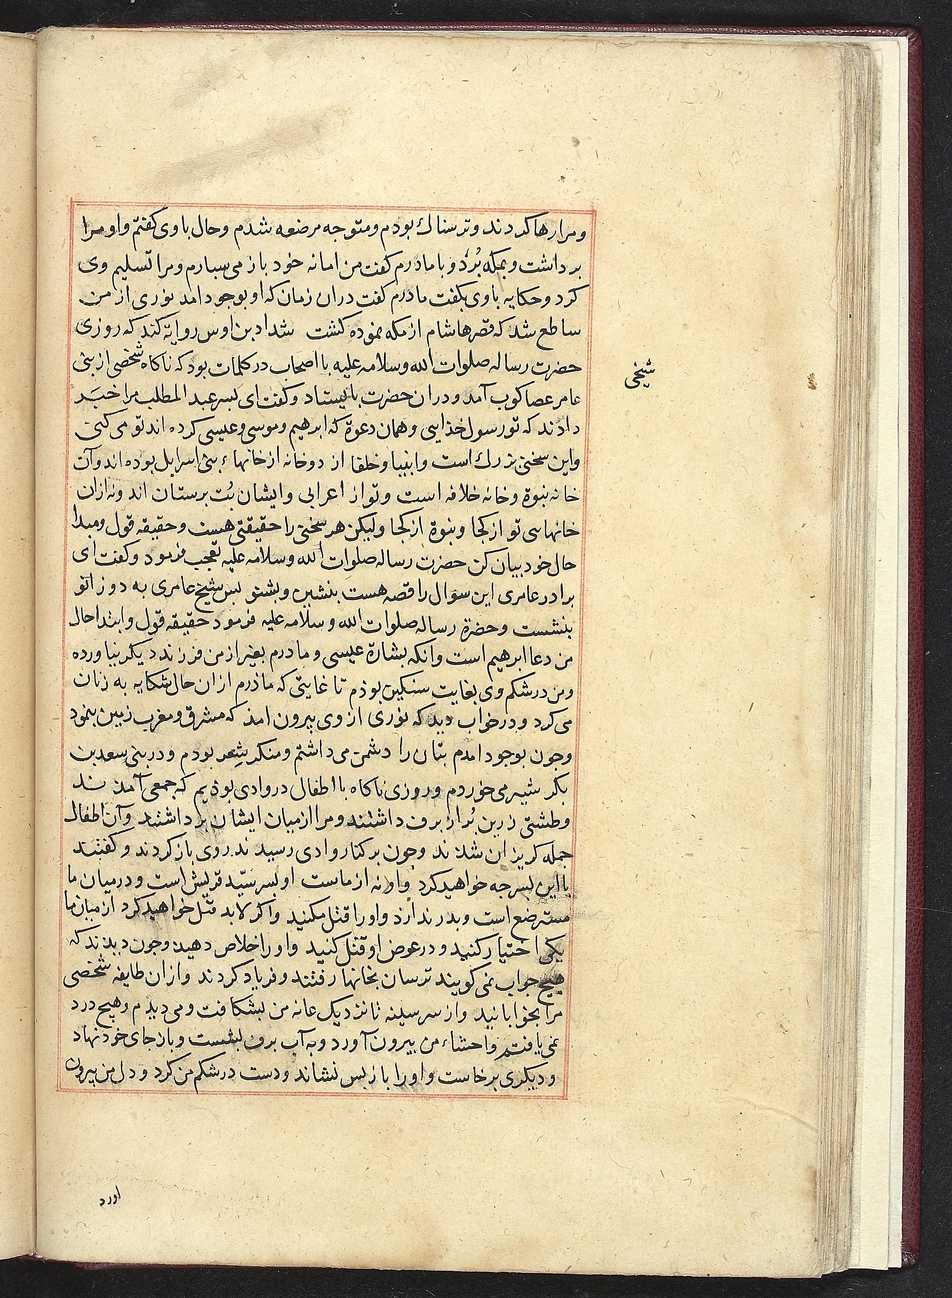 و مرا رها کردند و ترسناک بودم و متوجه مرضعه شدم و حال با وی کفتم و او مرا
برداشت و بمکه بُرد و با مادرم کفت من امانه خود باز می سپارم و مرا تسلیم وی
کرد و حکایه با وی بکفت مادرم کفت دران زمان که او بوجود امد نوری از من
ساطع شد که قصرها شام از مکه نموده کشت شداد بن اوس روایه کند که روزی
حضرت رساله صلوات الله وسلامه علیه با اصحاب در کلمات بود که ناکاه شخصی از بنی
شیخی
عامر عصا کوب آمد و دران حضرت باایستاد و کفت ای بسر عبد المطلب مرا خبَر
دادند که تو رسول خذایی و همان دعوة که ابرهیم و موسی و عیسی کرده اند تو می کنی
و این سخنی بزرك است و انبیا و خلفا از دو خانه از خانهاء بنی اسرایل بوده اند و آن
خانه نبوة و خانه خلافه است و تو از اعرابی و ایشان بُت برستان اند و نه ازان
خانهاسی تو از کجا و نبوة از کجا و لیکن هر سخنی را حقیقتی هست و حقیقه قول و مبدا
حال خود بیان کن حضرت رساله صلوات الله وسلامه علیه تعجب فرمود و کفت ای
برادر عامری این سوال را قصه هست بنشین و بشنو بس شیخ عامری به دو زانو
بنشست و حضرة رساله صلوات الله و سلامه علیه فرمود حقیقه قول و ابتدا حال
من دعا ابرهیم است و انکه بشارة عیسی و مادرم بغیر از من فرزند دیکر نیاورده
و من در شکم وی بغایت سنکین بوذم تا غایتی که ماذرم ازان حال شکایه به زنان
می کرد و در خواب دید که نوری از وی بیرون امذ که مشرق و مغرب زمین بنمود
و جون بوجود امدم بتان را دشمن می داشتم و منکر شِعر بودم و در بنی سعد بن
بکر شیر می خوردم و روزی ناکاه با اطفال در وادی بوذیم که جمعی آمدند
و طشتی زرین بُر از برف داشتند و مرا از میان ایشان برداشتند و آن اطفال
جمله کریزان شدند و جون بر کنار وادی رسیدند روی باز کردند و کفتند
با این بسر جه خواهید کرد و او نه از ماست او بسر سیّد قریش است و در میان ما
مسترضع است و بدر ندارد و او را قتل مکنید و اکر لابد قتل خواهید کرد از میان ما
یکی اختیار کنید و در عوض او قتل کنید و او را خلاص دهید و جون دیدند که
هیج جواب نمی کویند ترسان بخانها رفتند و فریاد کردند و ازان طایفه شخصی
مرا بخوابانید و از سر سینه تا نزدیک عانه من بشکافت و می دیدم و هیج درد
نمی یافتم و احشاء من بیرون آورد و به آب برف بشست و باز جای خود نهاد
و دیکری برخاست و او را باز بس نشاند و دست در شکم من کرد و دل من بیرون
اورد